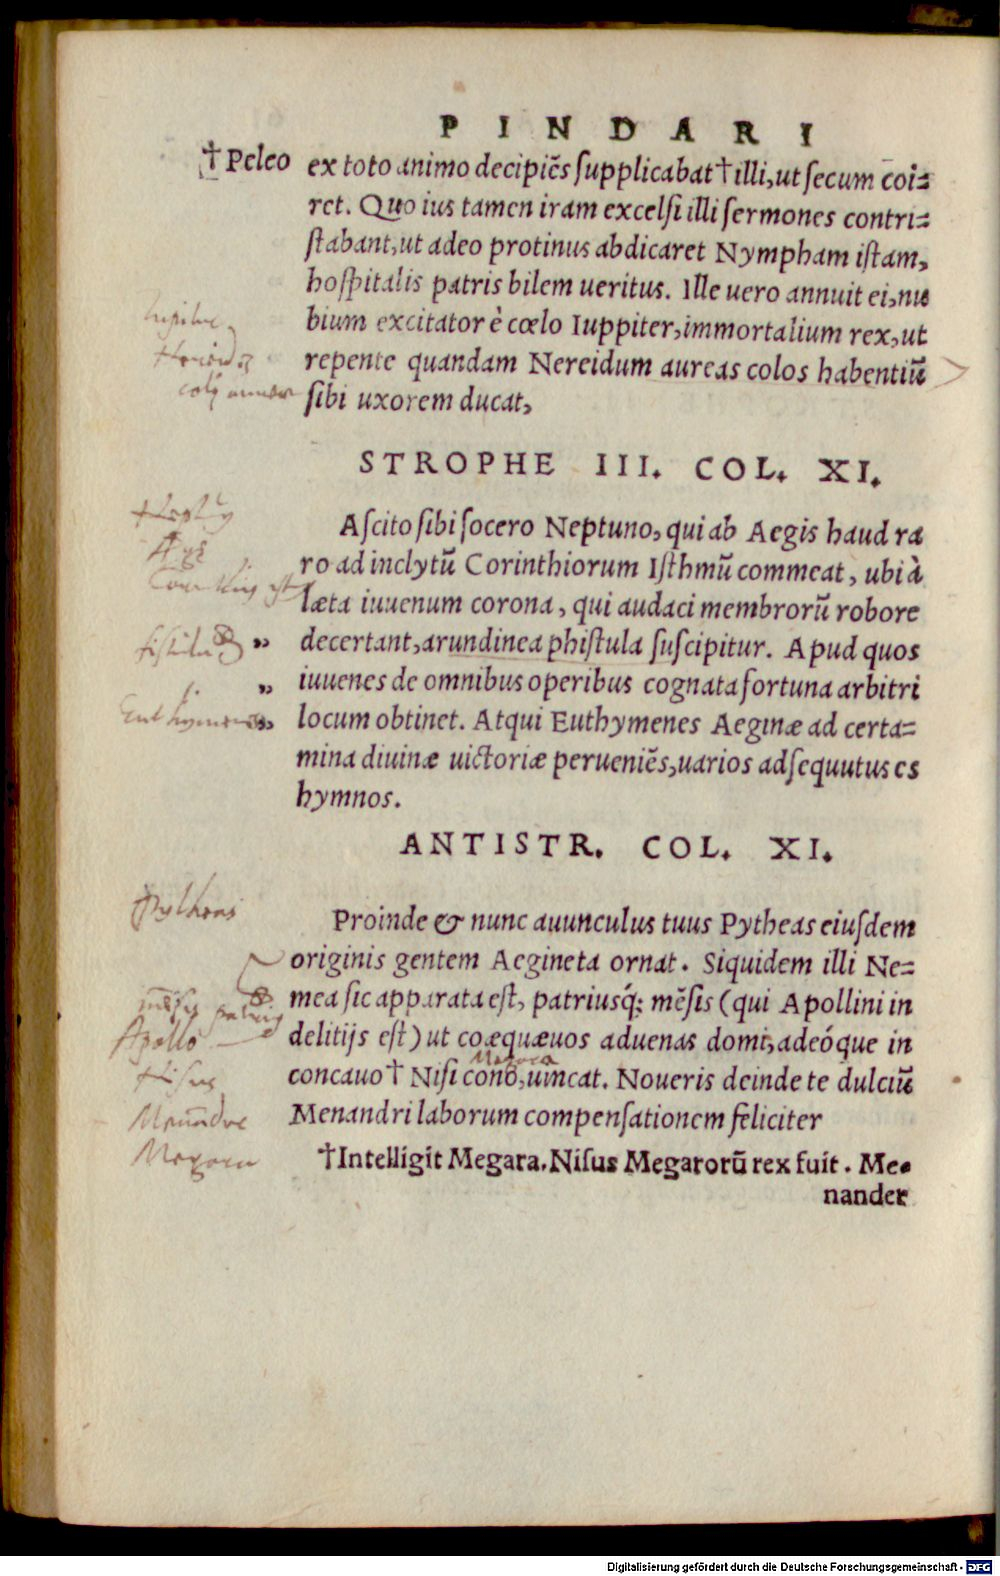 PINDARI
†Peleo ex toto animo decipiẽs ſupplicabat†illi, ut ſecum coi=
ret. Quo ius tamen iram excelſi illi ſermones contri=
ſtabant, ut adeo protinus abdicaret Nympham iſtam,
hoſpitalis patris bilem ueritus. Ille uero annuit ei, nu
bium excitator è cœlo Iuppiter, immortalium rex, ut
repente quandam Nereidum aureas colos habentiũ
ſibi uxorem ducat,
STROPHE III. COL. XI.
Aſcito ſibi ſocero Neptuno, qui ab Aegis haud ra
ro ad inclytũ Corinthiorum Iſthmũ commeat, ubi à
læta iuuenum corona, qui audaci membrorũ robore
decertant, arundinea phiſtula ſuſcipitur. Apud quos
iuuenes de omnibus operibus cognata fortuna arbitri
locum obtinet. Atqui Euthymenes Aeginæ ad certa=
mina diuinæ uictoriæ perueniẽs, uarios adſequutus es
hymnos.
ANTISTR. COL. XI.
Proinde & nunc auunculus tuus Pytheas eiuſdem
originis gentem Aegineta ornat. Siquidem illi Ne=
mea ſic apparata eſt, patriusq́; mẽſis (qui Apollini in
delitijs eſt) ut coæquæuos aduenas domi, adeóque in
Megara
concauo† Niſi cono, uincat. Noueris deinde te dulciũ
Menandri laborum compenſationem feliciter
†Intelligit Megara. Niſus Megarorũ rex fuit. Me-
nander
Apollo
Nisus
Menãdre
Megara
Digitalisierung gefördert durch die Deutsche Forschungsgemeinschaft - DFG